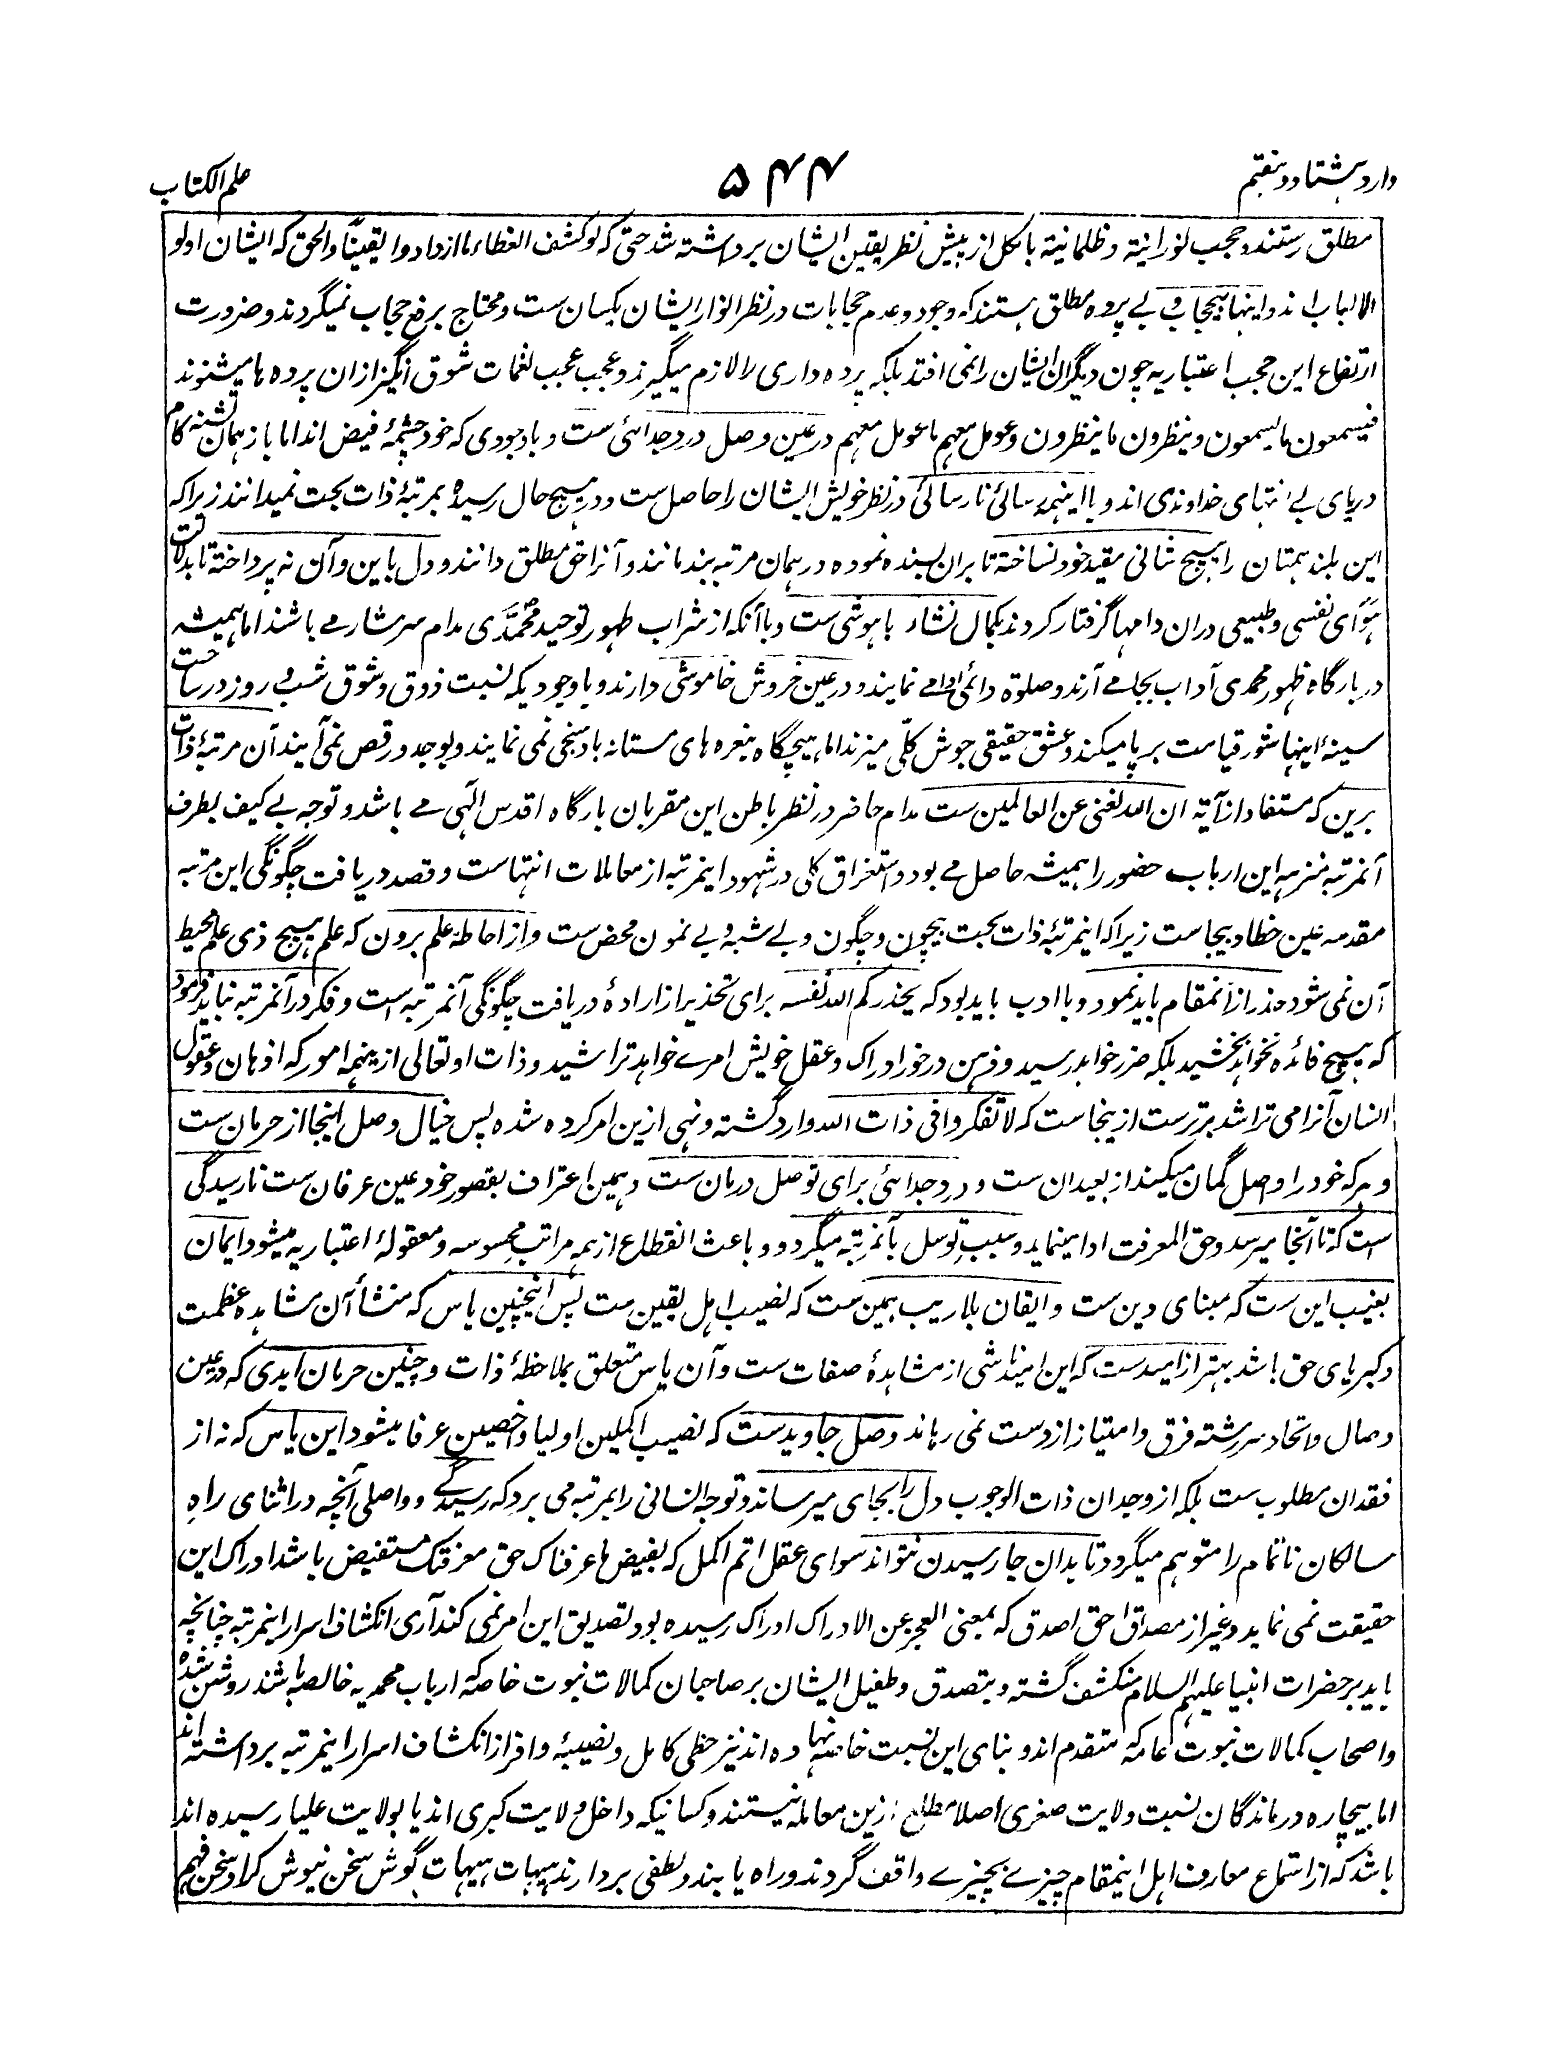 وارد هشتاد و هفتم
۵۴۴
علم الکتاب
مطلق رستند و حجب نورانیة و ظلمانیة بالکل از پیش نظر یقین ایشان برداشته شد حتی که لو کشف الغطاء ما ازدادوا یقیناً والحق که ایشان اولو
الالباب اند و اینها بیحجاب و بے پرده مطلق هستند که وجود و عدم حجابات در نظر انوار ایشان یکسان ست و محتاج برفع حجاب نمیگردند و ضرورت
ارتفاع این حجب اعتباریه چون دیگران ایشان را نمی افتد بلکه پرده داری را لازم میگیرند و عجب عجب نغمات شوق انگیز ازان پرده ها میشنوند
فیسمعون ما یسمعون و ینظرون ما ینظرون و عومل معهم ما عومل معهم در عین وصل درد جدائی ست و باوجودی که خود چشمۀ فیض اند اما باز همان تشنه کام
دریای بے انتهای خداوندی اند و با اینهمه رسائی نارسائی در نظر خویش ایشان را حاصل ست و در هیچ حال رسیده بمرتبۀ ذات بحت نمیدانند زیرا که
این بلند همتان را هیچ شانی مقید خود نساخته تا بران بسنده نموده در همان مرتبه بند مانند و آنرا حق مطلق دانند و دل باین و آن نه پرداخته تا بدلالت
هوای نفسی و طبیعی دران دامها گرفتار کردند بکمال نشاء باهوشی ست و با آنکه از شراب طهور توحید محمّدی مدام سرشار مے باشند اما همیشه
در بارگاه ظهور محمدی آداب بجا مے آرند و صلوة دائمی ادا مے نمایند و در عین خروش خاموشی دارند و باوجودیکه نسبت ذوق و شوق شب و روز در ساحت
سینۀ اینها شور قیامت برپا میکند و عشق حقیقی جوش کلّی میزند اما هیچگاه بنعره های مستانه بادسنجی نمی نمایند و بوجد و رقص نمی آیند آن مرتبۀ ذات
برین که مستفاد از آیۀ ان الله لغنی عن العالمین ست مدام حاضر در نظر باطن این مقربان بارگاه اقدس الٰهی مے باشد و توجه بے کیف بطرف
آنمرتبه منزهه این ارباب حضور را همیشه حاصل مے بود و استغراق کلی در شهود اینمرتبه از معاملات انتهاست و قصد دریافت چگونگی این مرتبه
مقدسه عین خطا و بیجاست زیرا که اینمرتبۀ ذات بحت بیچون و چگون و بے شبه و بے نمون محض ست و از احاطۀ علم برون که علم هیچ ذی علم محیط
آن نمی شود حذر ازانمقام باید نمود و با ادب باید بود که یحذرکم الله نفسه برای تحذیر از ارادۀ دریافت چگونگی آنمرتبه است و فکر در آنمرتبه نباید فرمود
که هیچ فائده نخواهد بخشید بلکه ضرر خواهد رسید و ذهن در خور ادراک و عقل خویش امرے خواهد تراشید و ذات او تعالی ازینهمه امور که اذهان و عقول
انسان آنرا می تراشد برترست ازینجاست که لا تفکروا فی ذات الله وارد گشته و نهی ازین امر کرده شده پس خیال وصل اینجا از حرمان ست
و هر که خود را واصل گمان میکند از بعیدان ست و درد جدائی برای توصل درمان ست و همین اعتراف بقصور خود عین عرفان ست نارسیدگی
است که تا آنجا میرسد و حق المعرفت ادا مینماید و سبب توسل بآنمرتبه میگردد و باعث انقطاع از همه مراتب محسوسه و معقولۀ اعتباریه میشود ایمان
بغیب این ست که مبنای دین ست و ایقان بلا ریب همین ست که نصیب اهل یقین ست پس اینچنین یاس که منشأ آن مشاهدۀ عظمت
و کبریای حق باشد بهتر از امیدست که این امید ناشی از مشاهدۀ صفات ست و آن یاس متعلق بملاحظۀ ذات و چنین حرمان ابدی که در عین
وصال و اتحاد سررشته فرق و امتیاز از دست نمی رهاند وصل جاویدست که نصیب اکملین اولیا و اخصین عرفا میشود این یاس که نه از
فقدان مطلوب ست بلکه از وجدان ذات الوجوب دل را بجای میرساند و توجه انسانی را بمرتبه می برد که رسیدگے و واصلی آنچه در اثنای راه
سالکان ناتمام را متوهم میگردد تا بدان جا رسیدن نتواند سوای عقل اتم اکمل که بفیض ما عرفناک حق معرفتک مستفیض باشد ادراک این
حقیقت نمی نماید و غیر از مصداق احق اصدق که بمعنی العجز عن الادراک ادراک رسیده بود تصدیق این امر نمی کند آری انکشاف اسرار اینمرتبه چنانچه
باید بر حضرات انبیا علیهم السلام منکشف گشته و بتصدق و طفیل ایشان بر صاحبان کمالات نبوت خاصه که ارباب محمدیه خالصه باشند روشن شده
و اصحاب کمالات نبوت عامه که متقدم اند و بنای این نسبت خاصه نهاده اند نیز حظی کامل و نصیبۀ وافر از انکشاف اسرار اینمرتبه برداشته اند
اما بیچاره درماندگان نسبت ولایت صغری اصلا مطلع ازین معامله نیستند و کسانیکه داخل ولایت کبری اند یا بولایت علیا رسیده اند
باشد که از استماع معارف اهل اینمقام چیزے بچیزے واقف گردند و راه یابند و لطفی بردارند هیهات هیهات گوش سخن نیوش کرا و سخن فهم